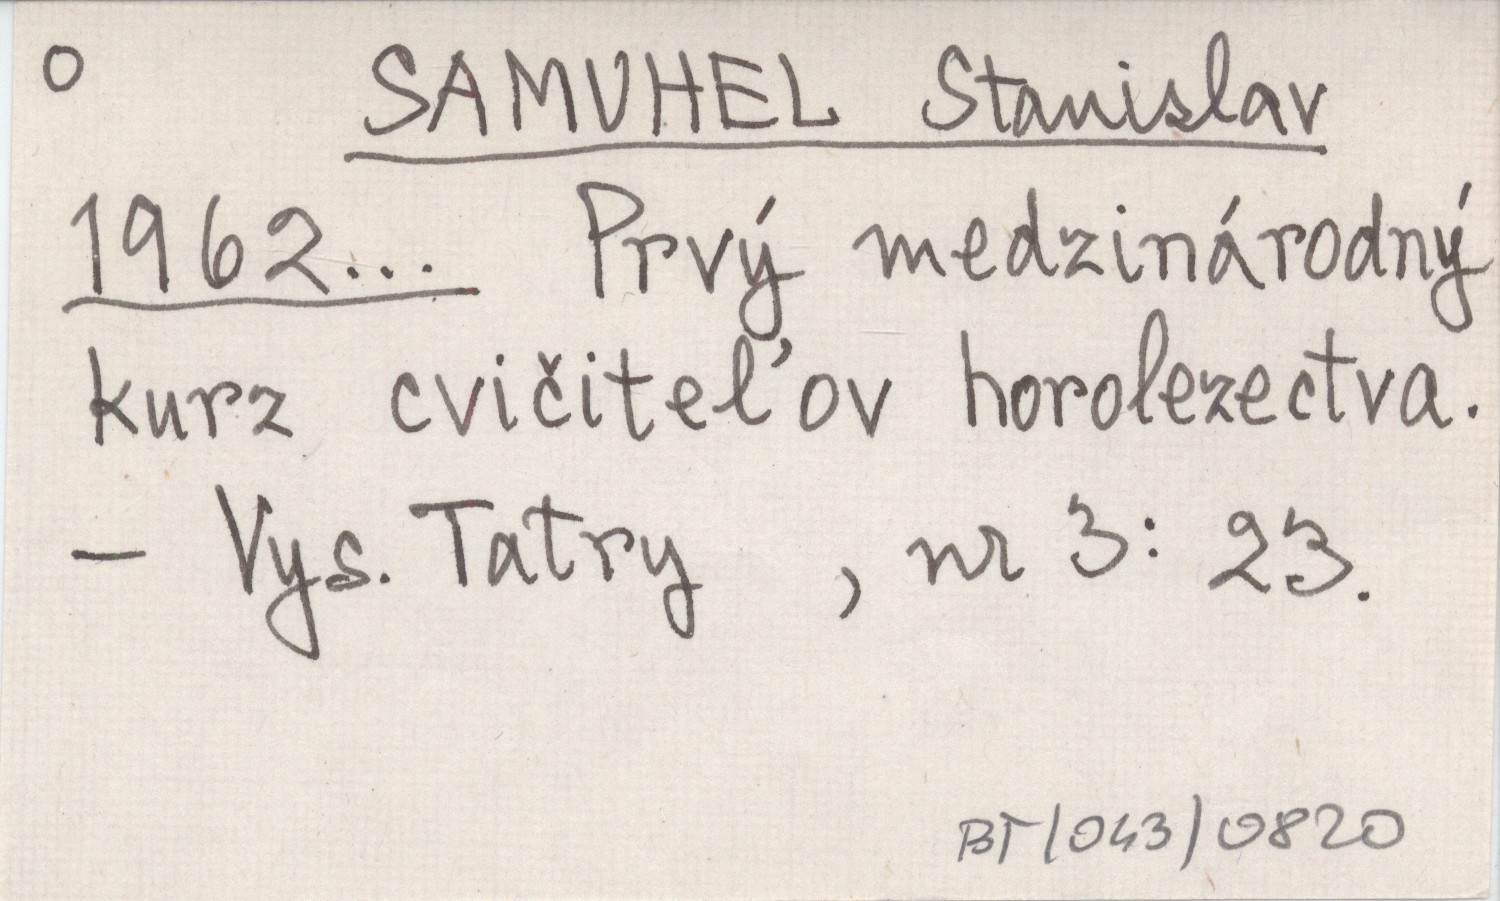 O SAMUHEL Stanislav
1962... Prvý medzinárodný
kurz cvičiteľov horolezectva.
- Vys. Tatry , nr 3: 23.
BT/043/0820